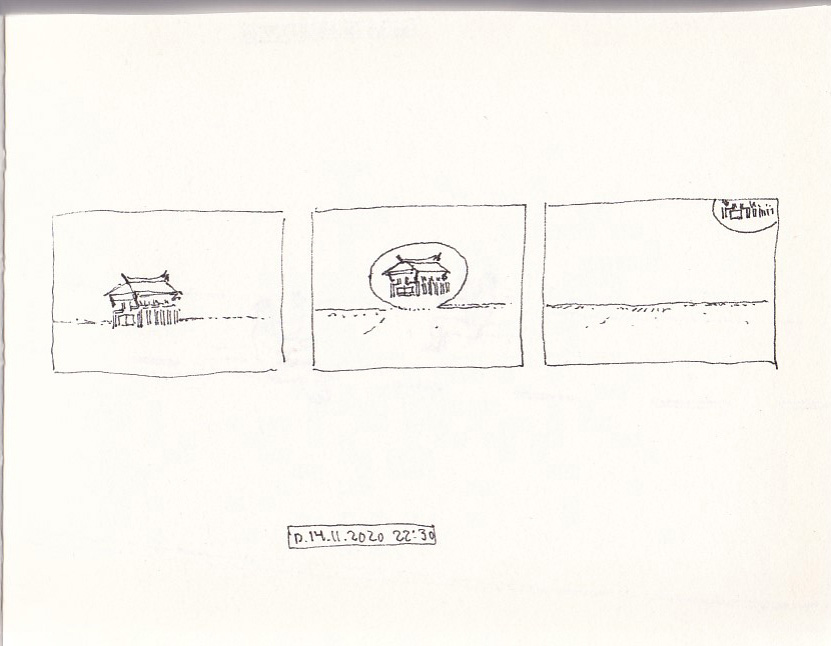 p.14.11.2020 22:30